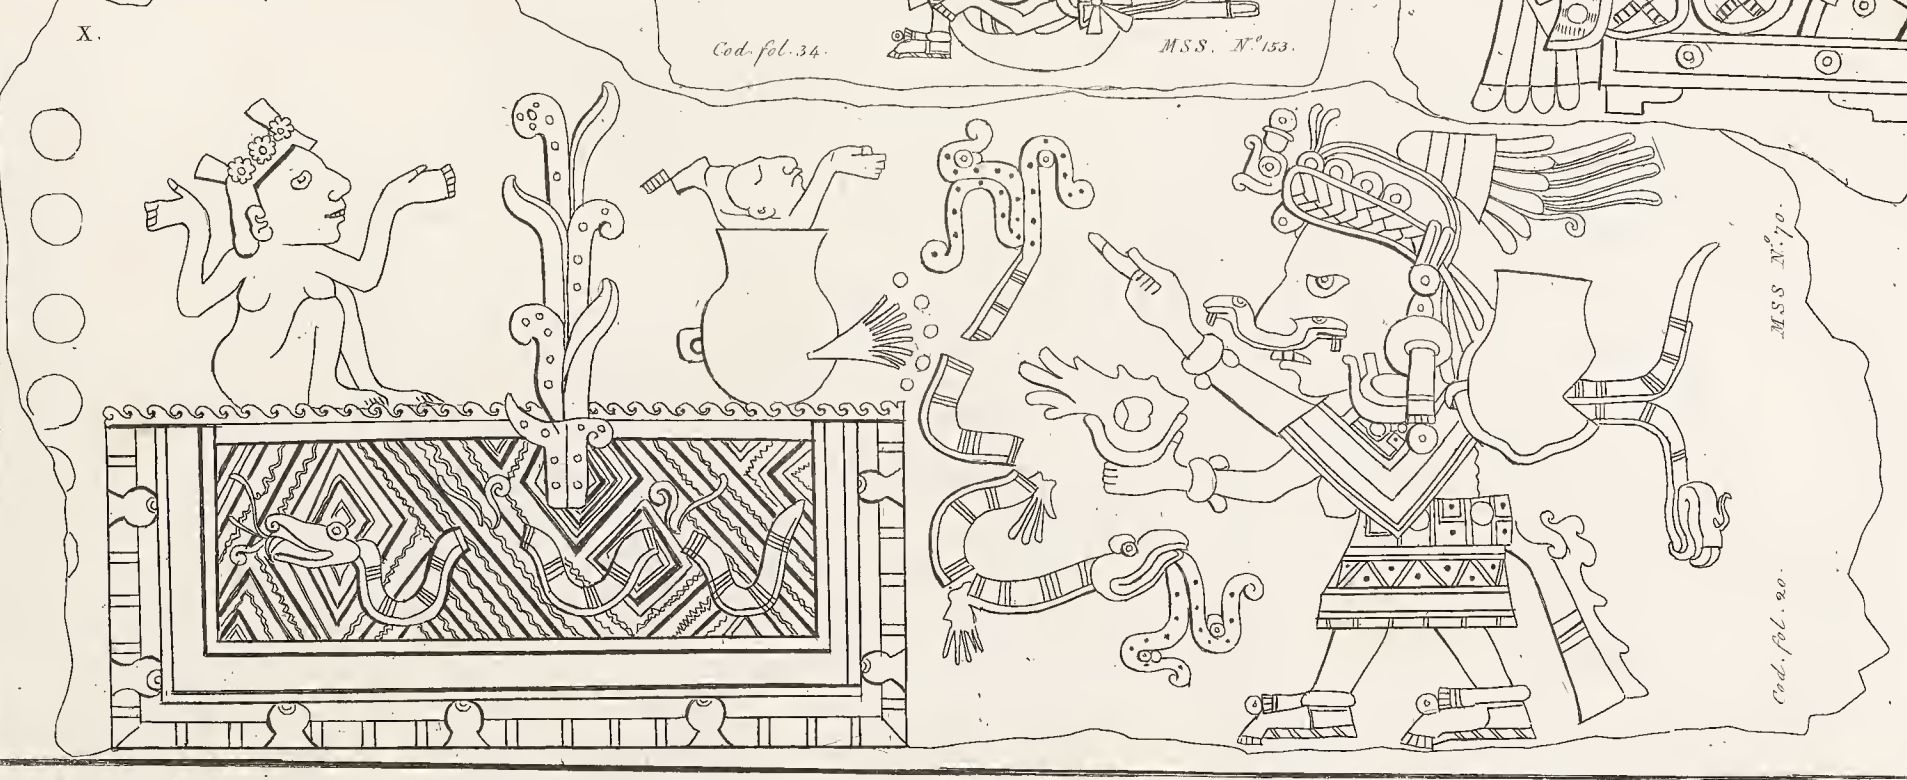 X.
Cod. fol. 34.
MSS. N.º 153.
MSS N.º 70.
Cod. fol. 20.